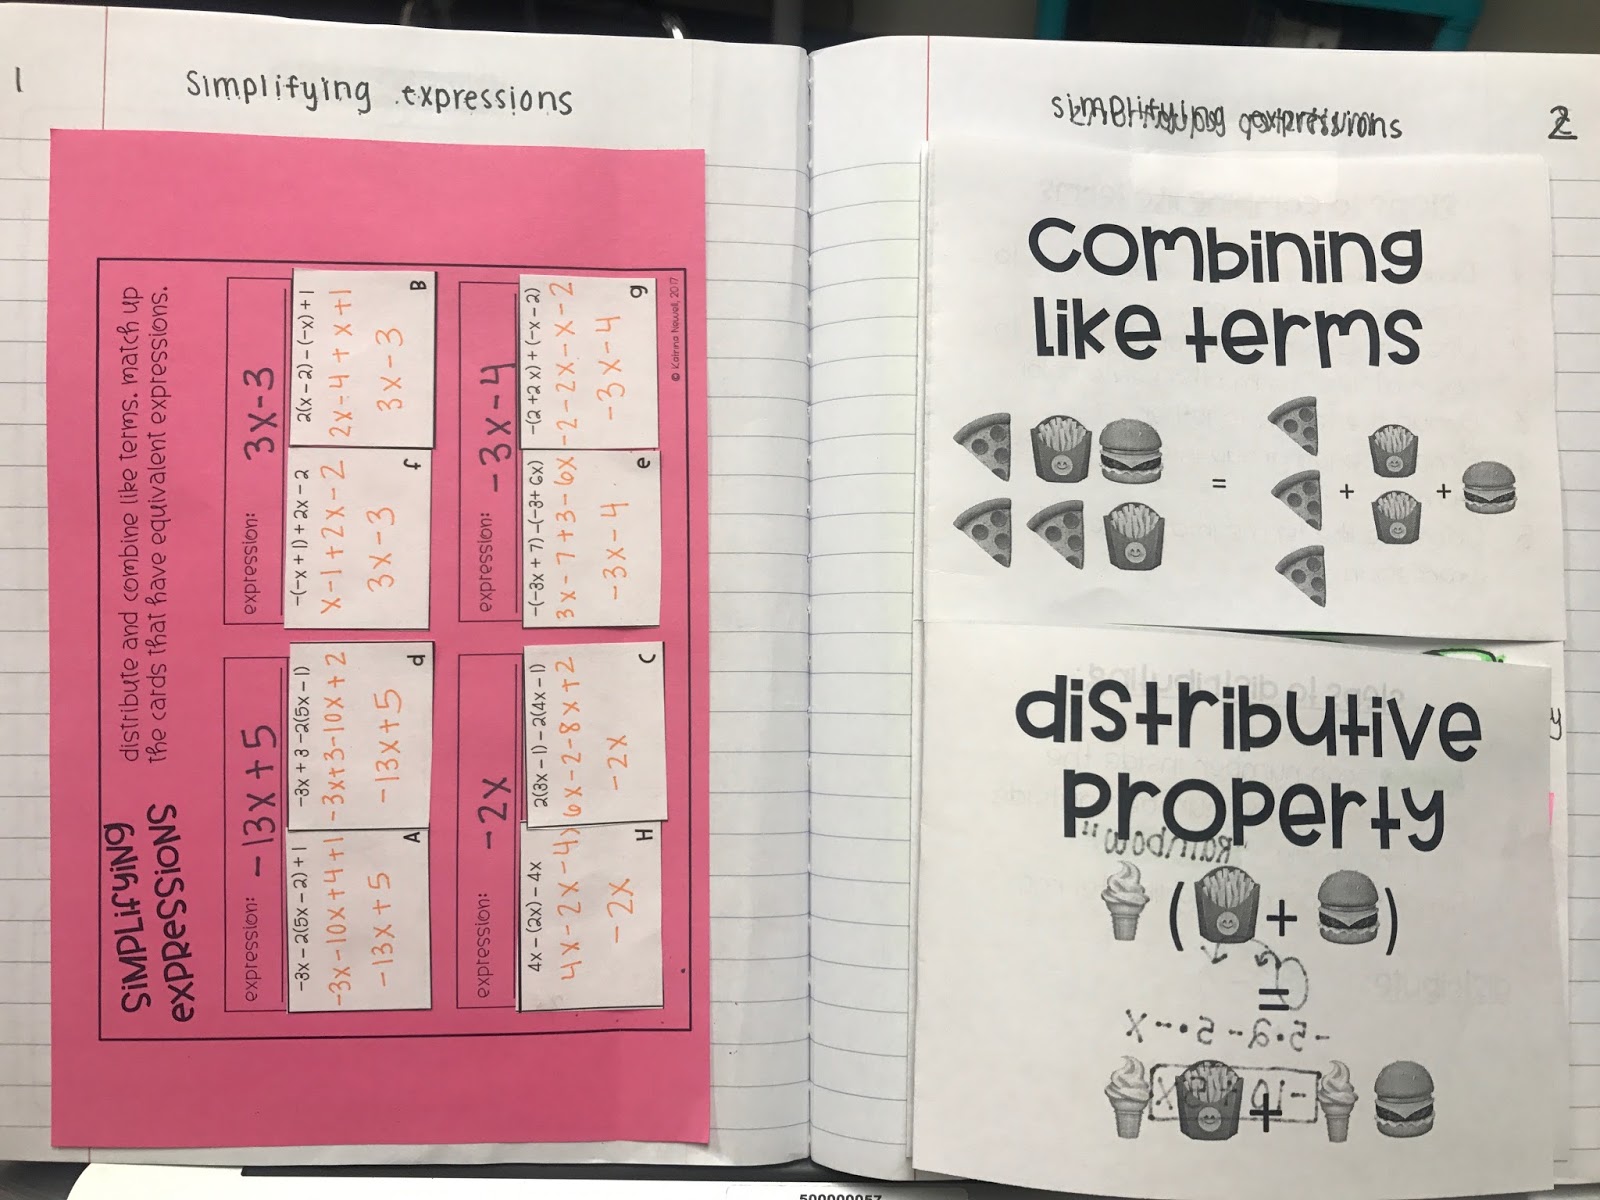 1
simplifying expressions
SIMPLIFYING
EXPRESSIONS
distribute and combine like terms. match up
the cards that have equivalent expressions.
expression: -13x + 5
-3x - 2(5x - 2) + 1
-3x - 10x + 4 + 1
-13x + 5
A
-3x + 3 - 2(5x - 1)
-3x + 3 - 10x + 2
-13x + 5
d
expression: 3x - 3
-(-x + 1) + 2x - 2
x - 1 + 2x - 2
3x - 3
f
2(x - 2) - (-x) + 1
2x - 4 + x + 1
3x - 3
B
expression: -2x
4x - (2x) - 4x
4x - 2x - 4x
-2x
H
2(3x - 1) - 2(4x - 1)
6x - 2 - 8x + 2
-2x
C
expression: -3x - 4
-(-3x + 7) - (-3 + 6x)
3x - 7 + 3 - 6x
-3x - 4
e
-(2 + 2x) + (-x - 2)
-2 - 2x - x - 2
-3x - 4
g
© Katrina Newell, 2017
2
combining
like terms
= + +
distributive
property
"Rainbow"
( + )
=
+
y
500000057